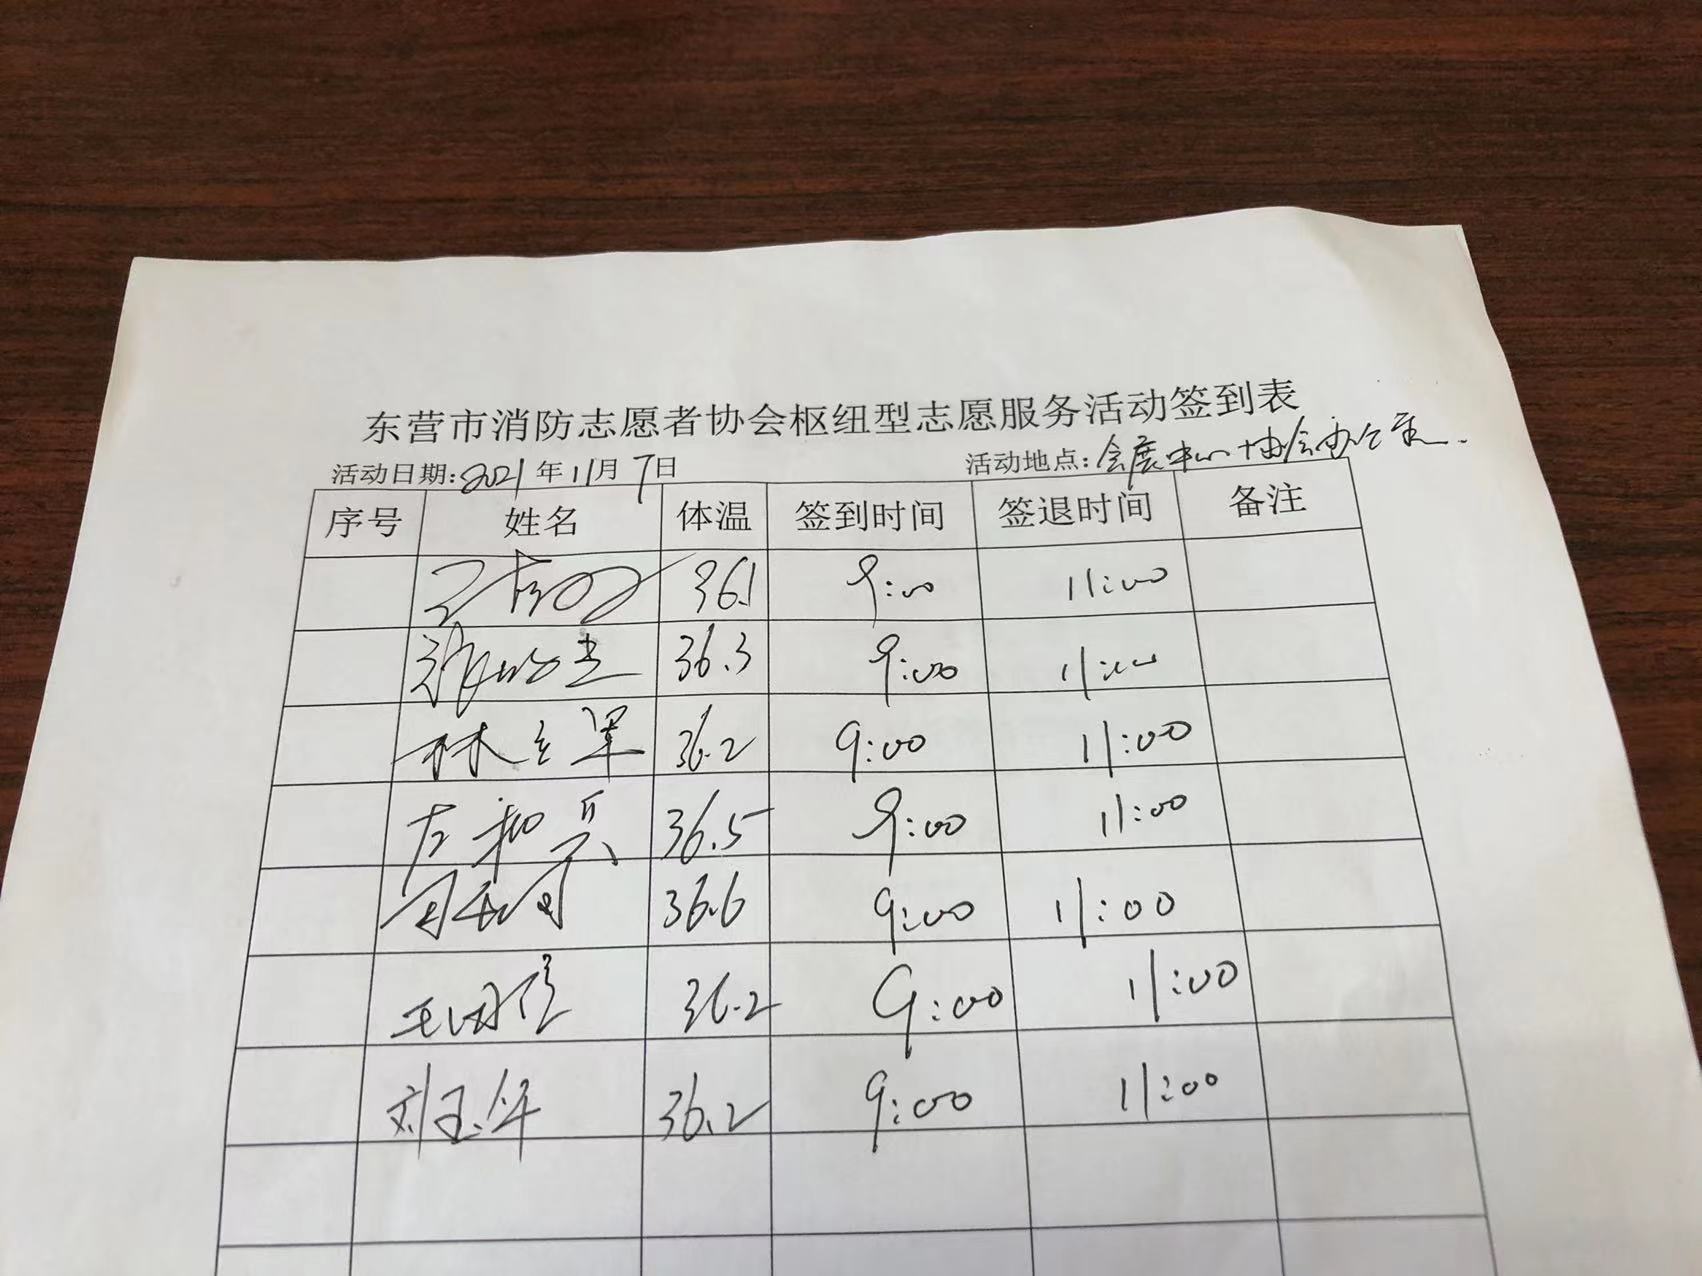 东营市消防志愿者协会枢纽型志愿服务活动签到表
活动日期:2021年11月7日 活动地点:会展中心协会办公室.
序号 姓名 体温 签到时间 签退时间 备注
36.1 9:00 11:00
36.3 9:00 11:00
林立军 36.2 9:00 11:00
36.5 9:00 11:00
36.6 9:00 11:00
36.2 9:00 11:00
刘玉华 36.2 9:00 11:00